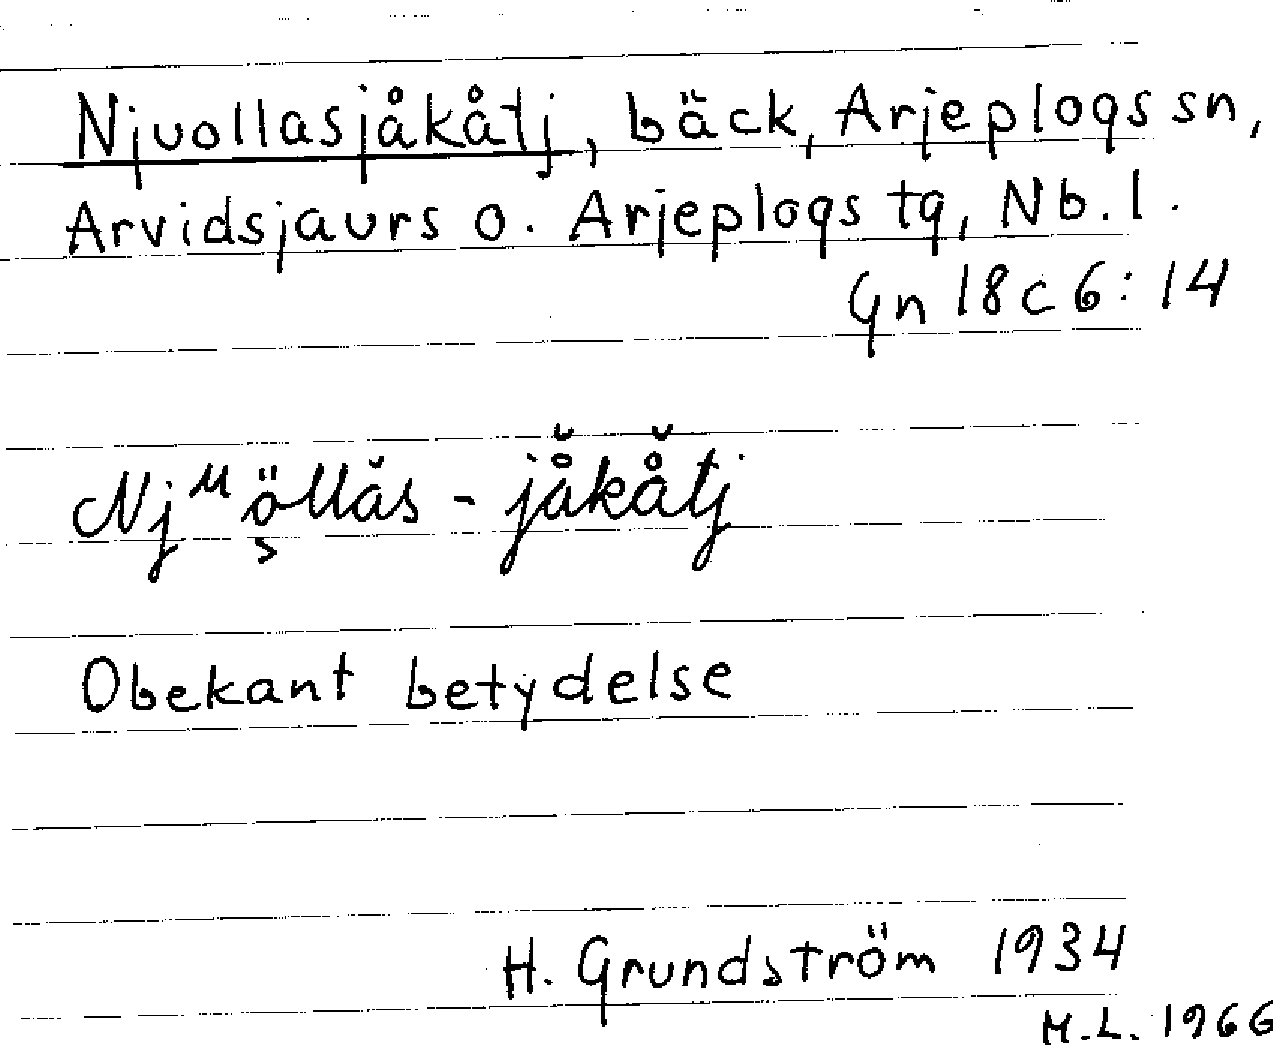 Njuollasjåkåtj, bäck, Arjeplogs sn,
Arvidsjaurs o. Arjeplogs tg, Nb. l.
Gn 18 c 6: 14
Njᵘö̖llăs - jå̆kå̆tj
Obekant betydelse
H. Grundström 1934
M.L. 1966